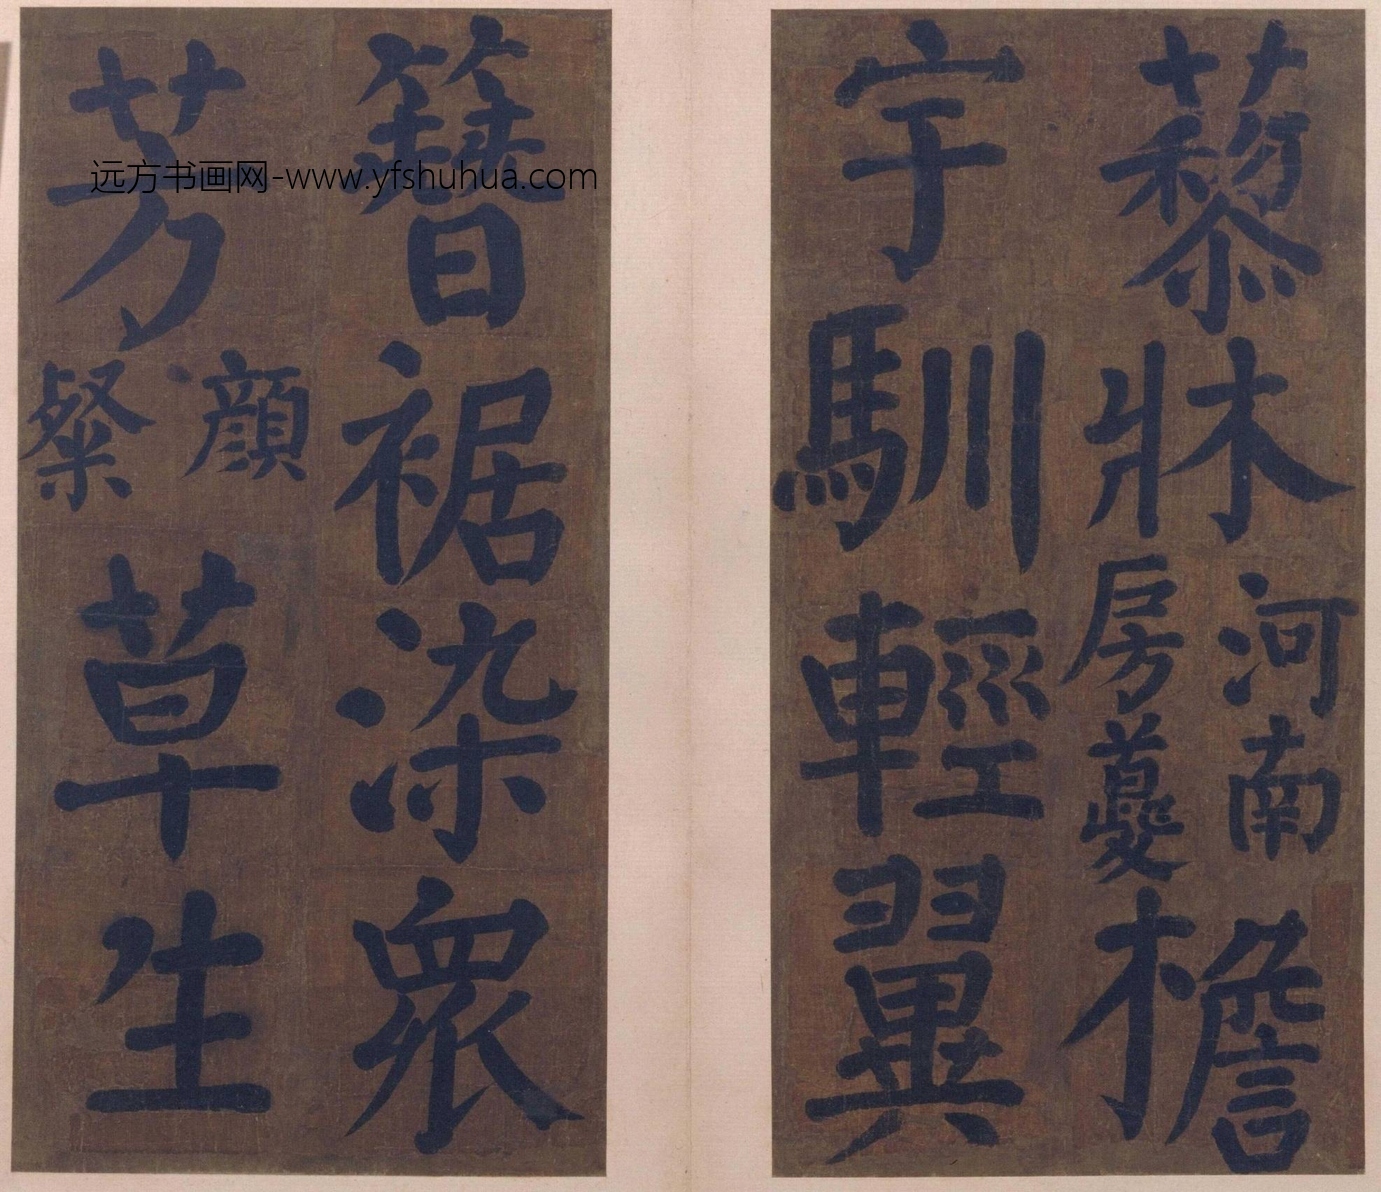 藜牀
河南
房夔
檐
宇馴輕翼
簪裾染眾
芳
顔
粲
草生
远方书画网-www.yfshuhua.com